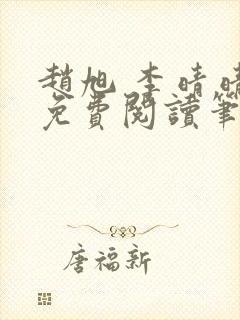 趙旭 李晴晴
免費閱讀筆
唐福新